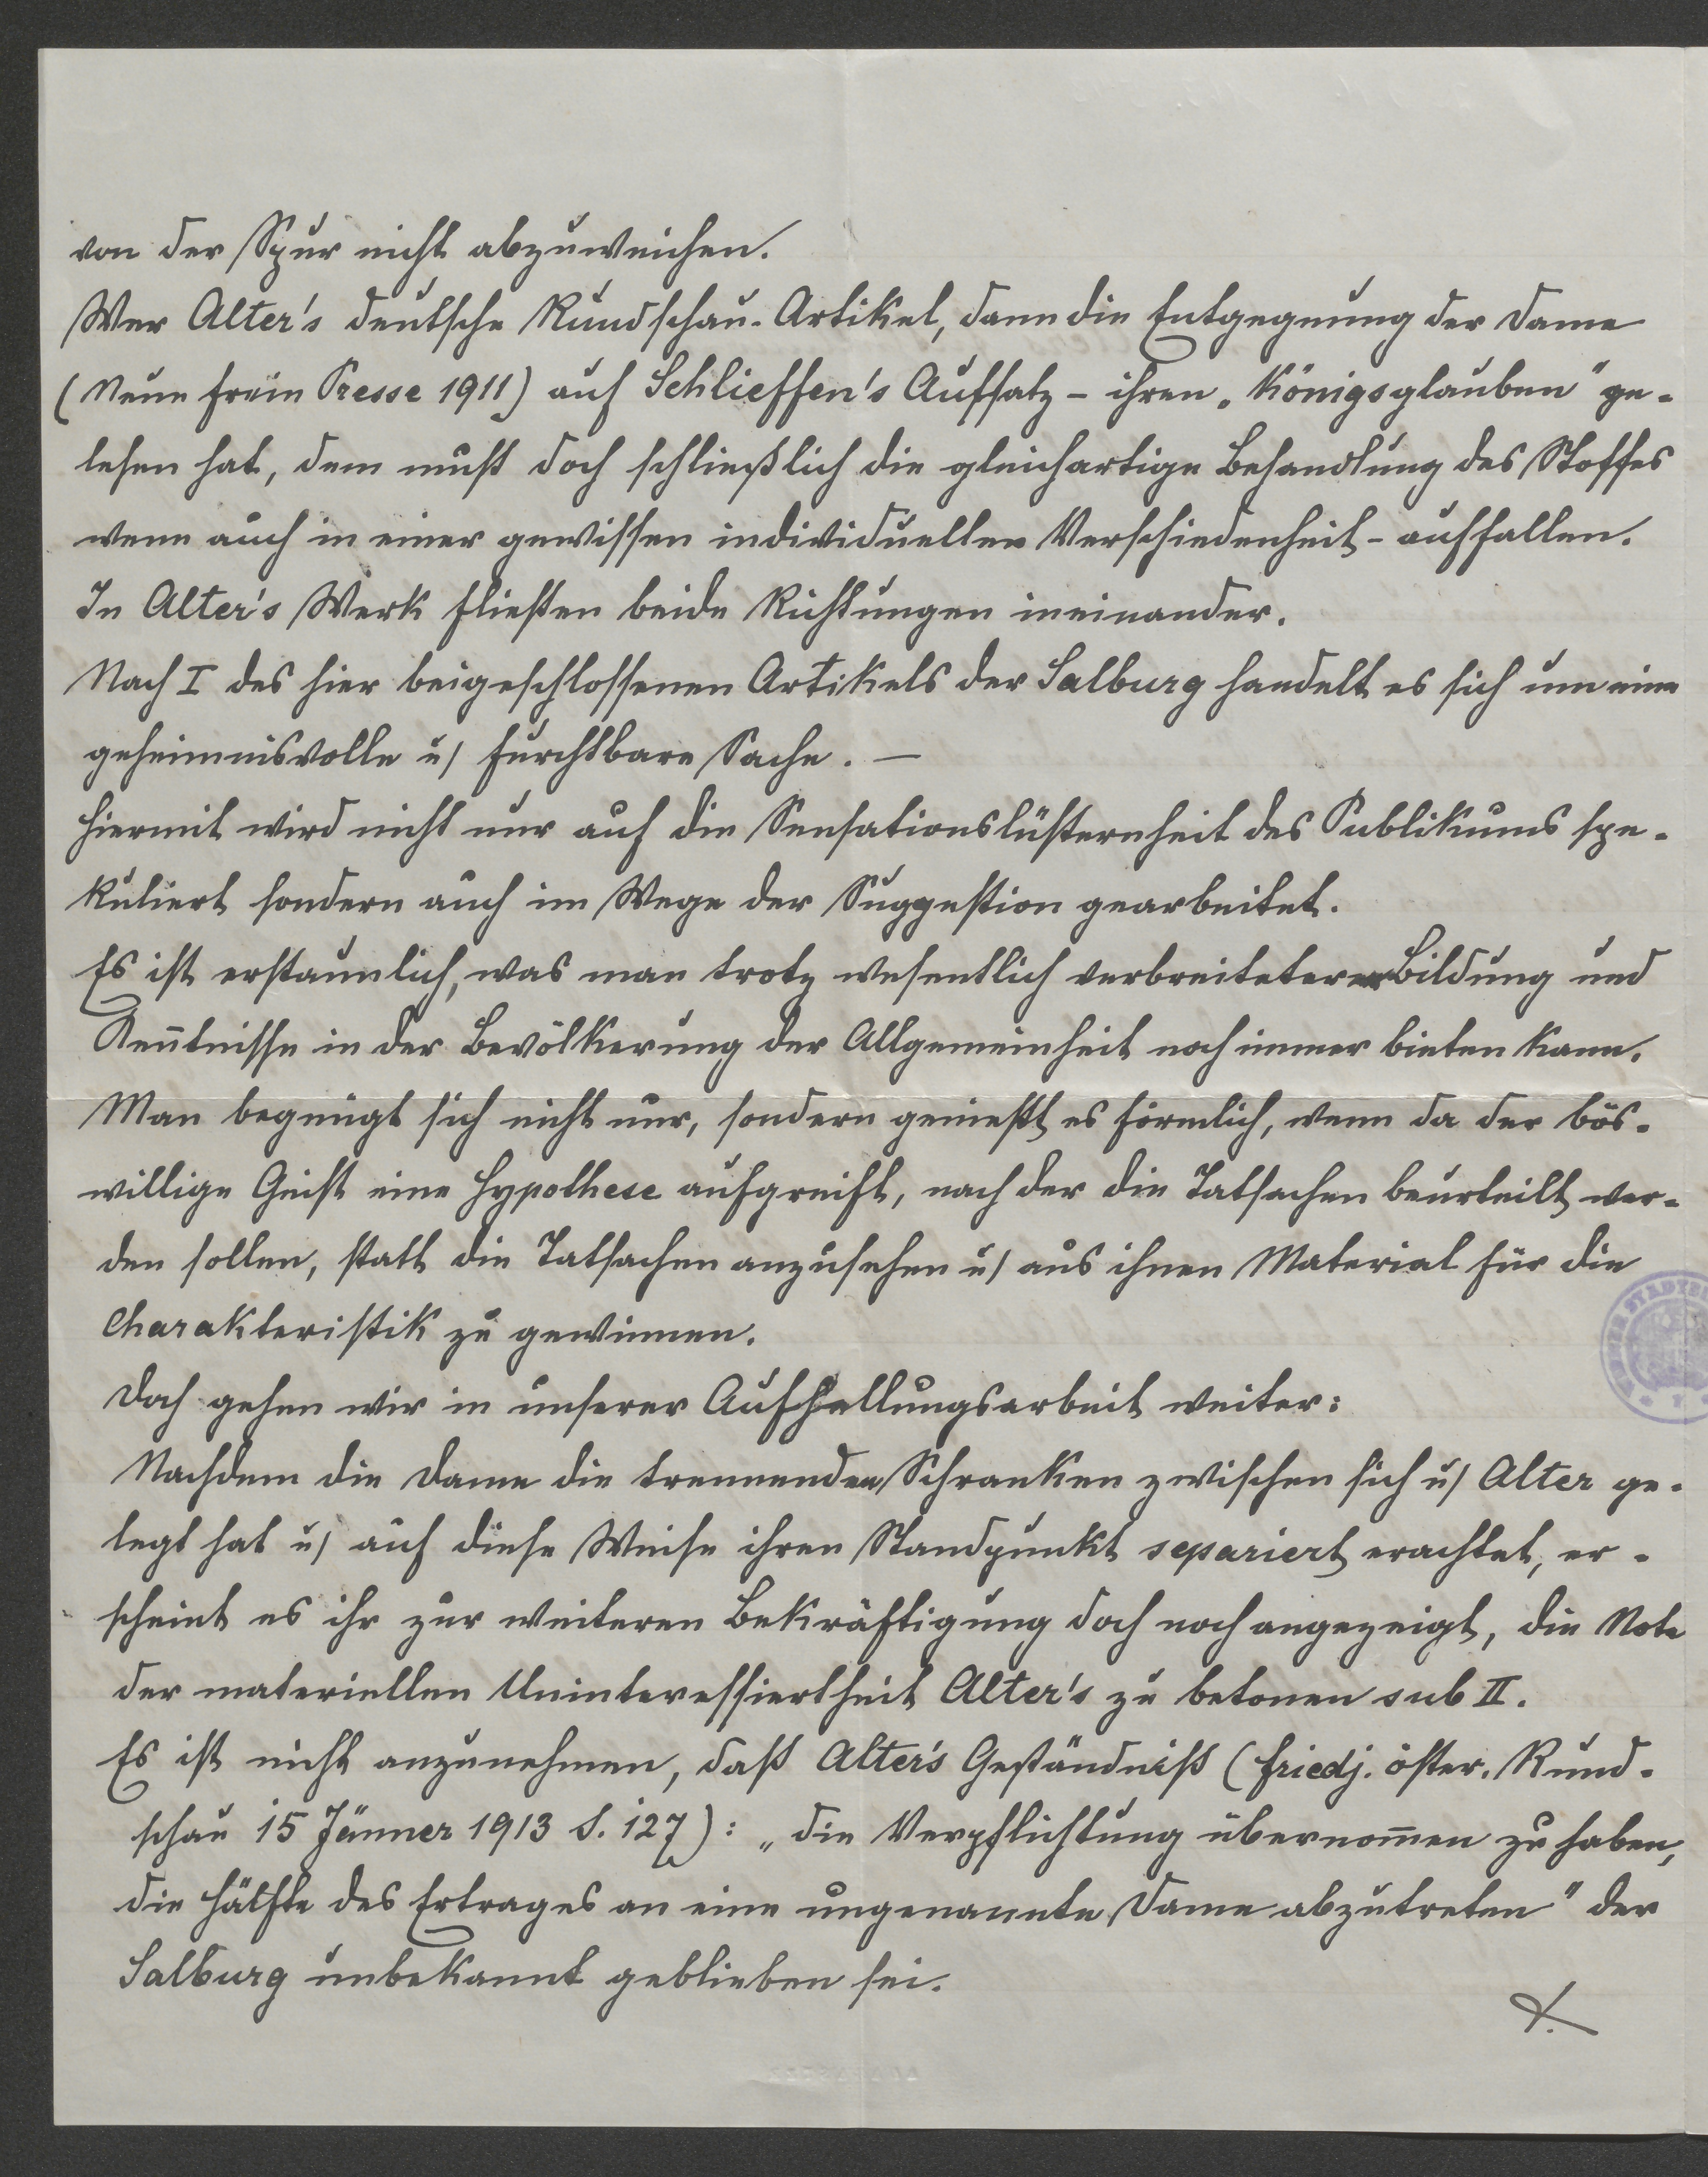 von der Spur nicht abzuweichen.
Wer Alter's deutsche Rundschau-Artikel, dann die Entgegnung der Dame
(Neue freie Presse 1911) auf Schlieffen's Aufsatz – ihren „Königsglauben" ge-
lesen hat, dem muß doch schließlich die gleichartige Behandlung des Stoffes
wenn auch in einer gewissen individuellen Verschiedenheit – auffallen.
In Alter's Werk fließen beide Richtungen ineinander.
Nach I des hier beigeschlossenen Artikels der Salburg handelt es sich um eine
geheimnisvolle u/ furchtbare Sache. —
Hiermit wird nicht nur auf die Sensationslüsternheit des Publikums spe-
kuliert sondern auch im Wege der Suggestion gearbeitet.
Es ist erstaunlich, was man trotz wesentlich verbreiteterer Bildung und
Keñtnisse in der Bevölkerung der Allgemeinheit noch immer bieten kann.
Man begnügt sich nicht nur, sondern genießt es förmlich, wenn da der bös-
willige Geist eine Hypothese aufgreift, nach der die Tatsachen beurteilt wer-
den sollen, statt die Tatsachen anzusehen u/ aus ihnen Material für die
Charakteristik zu gewinnen.
Doch gehen wir in unserer Aufhellungsarbeit weiter:
Nachdem die Dame die trennenden Schranken zwischen sich u/ Alter ge-
legt hat u/ auf diese Weise ihren Standpunkt separiert erachtet, er-
scheint es ihr zur weiteren Bekräftigung doch noch angezeigt, die Note
der materiellen Uninteressiertheit Alter's zu betonen sub II.
Es ist nicht anzunehmen, daß Alter's Geständniß (Friedj. öster. Rund-
schau 15 Jänner 1913 S. 127): „die Verpflichtung übernom̄en zu haben,
die Hälfte des Ertrages an eine ungenannte Dame abzutreten" der
Salburg unbekannt geblieben sei.